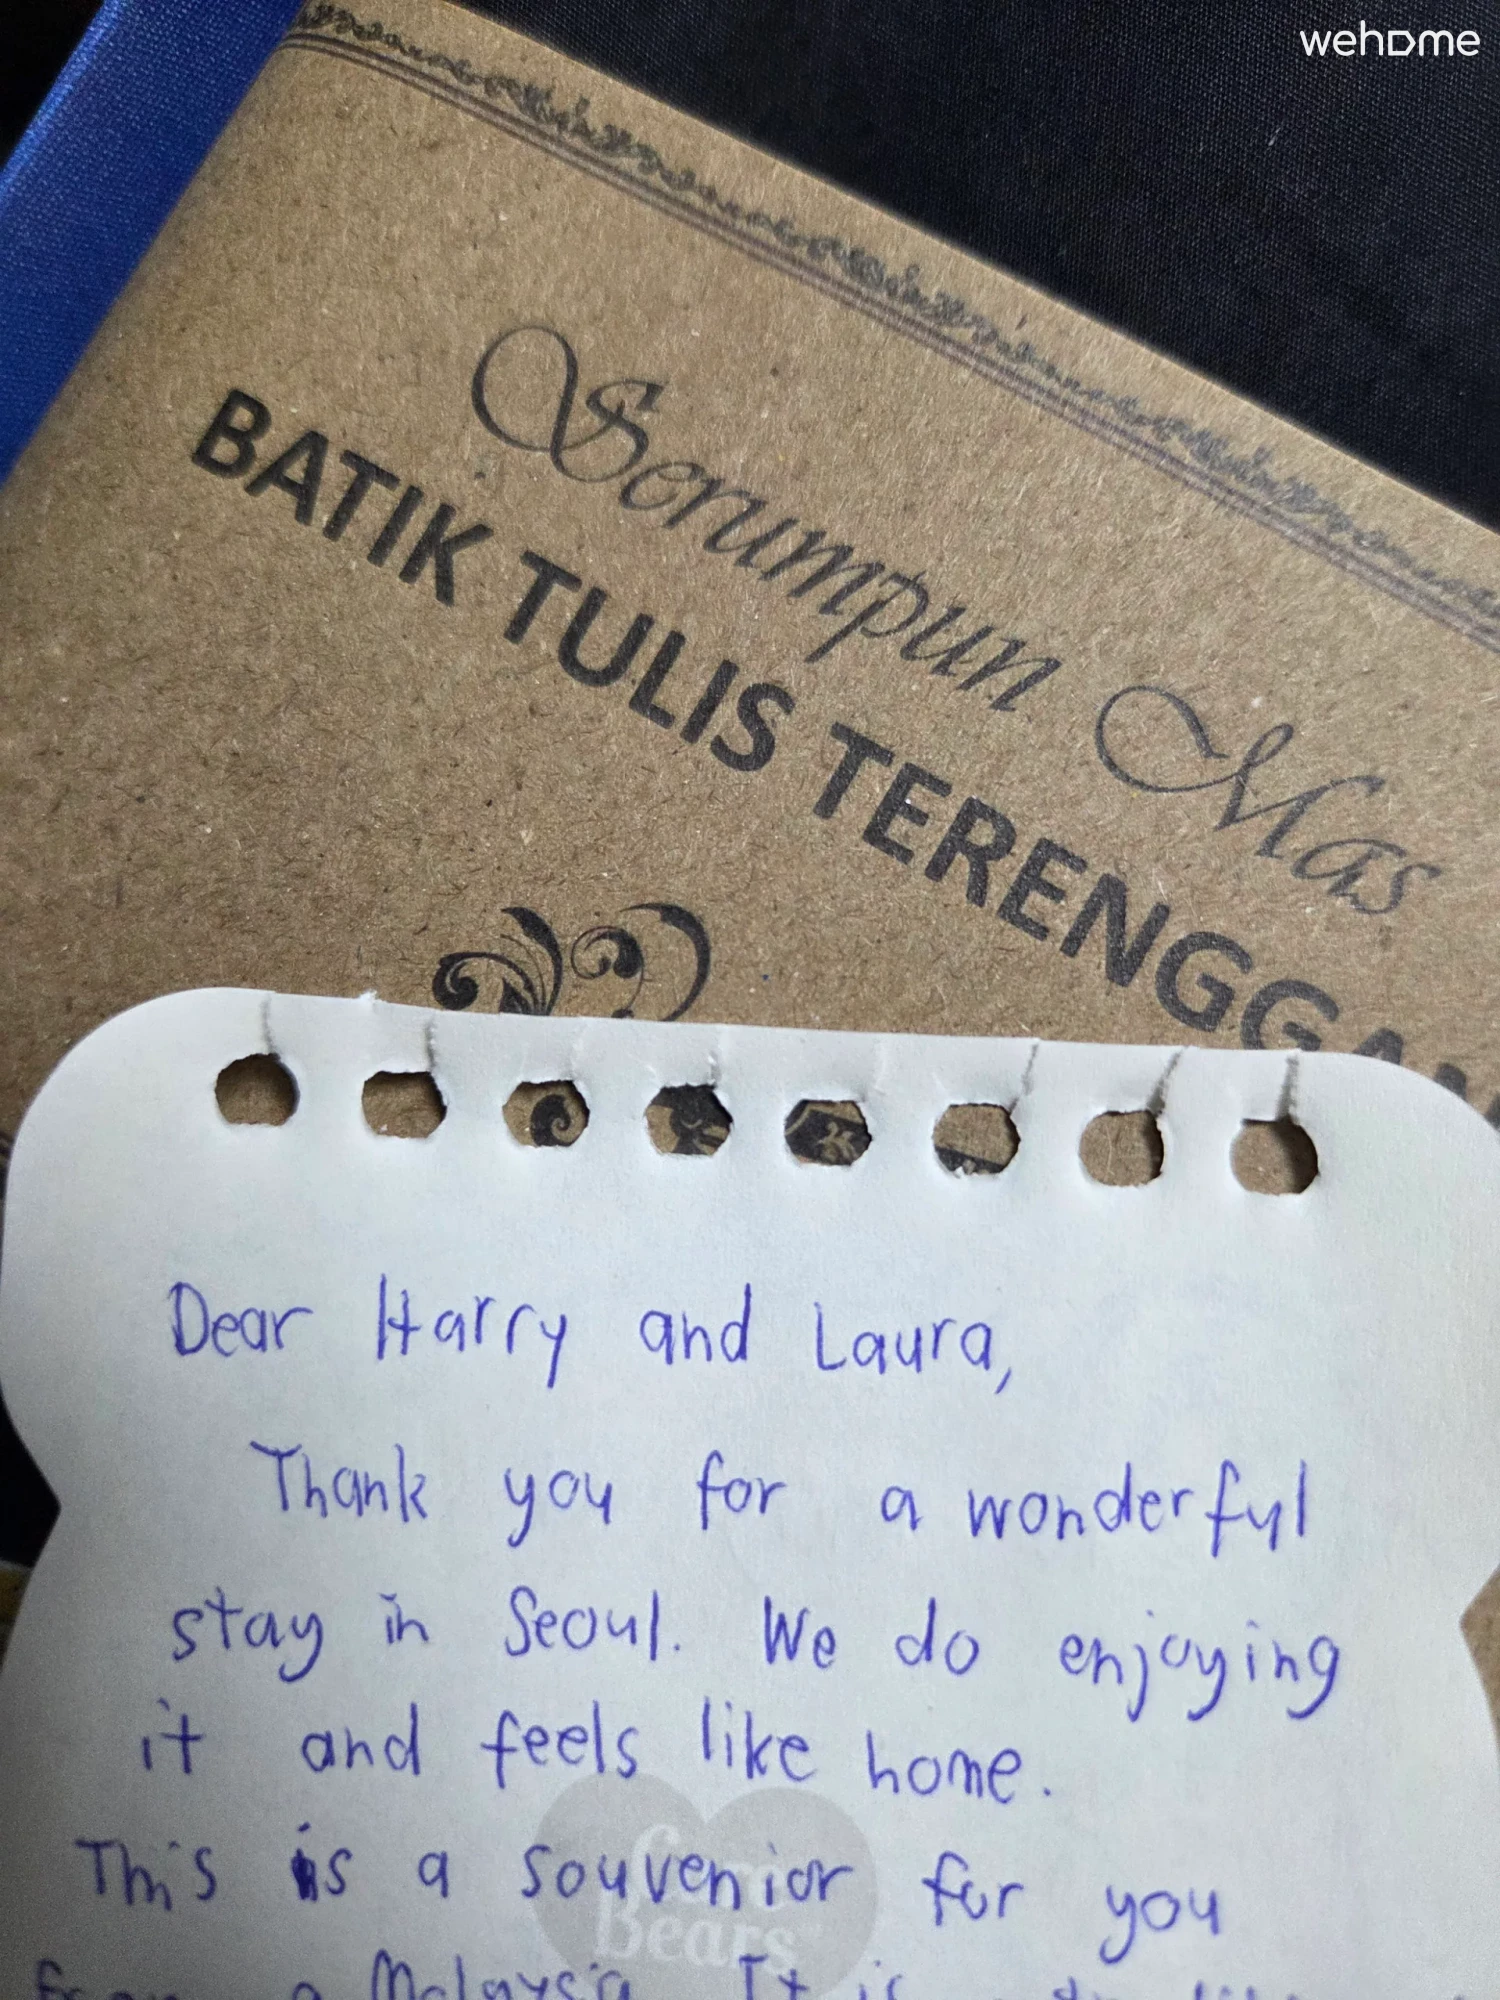 wehome
Serumpun Mas
BATIK TULIS TERENGGA
Dear Harry and Laura,
Thank you for a wonderful
stay in Seoul. We do enjoying
it and feels like home.
This is a souvenior for you
Care
Bears
from a Malaysia. It is